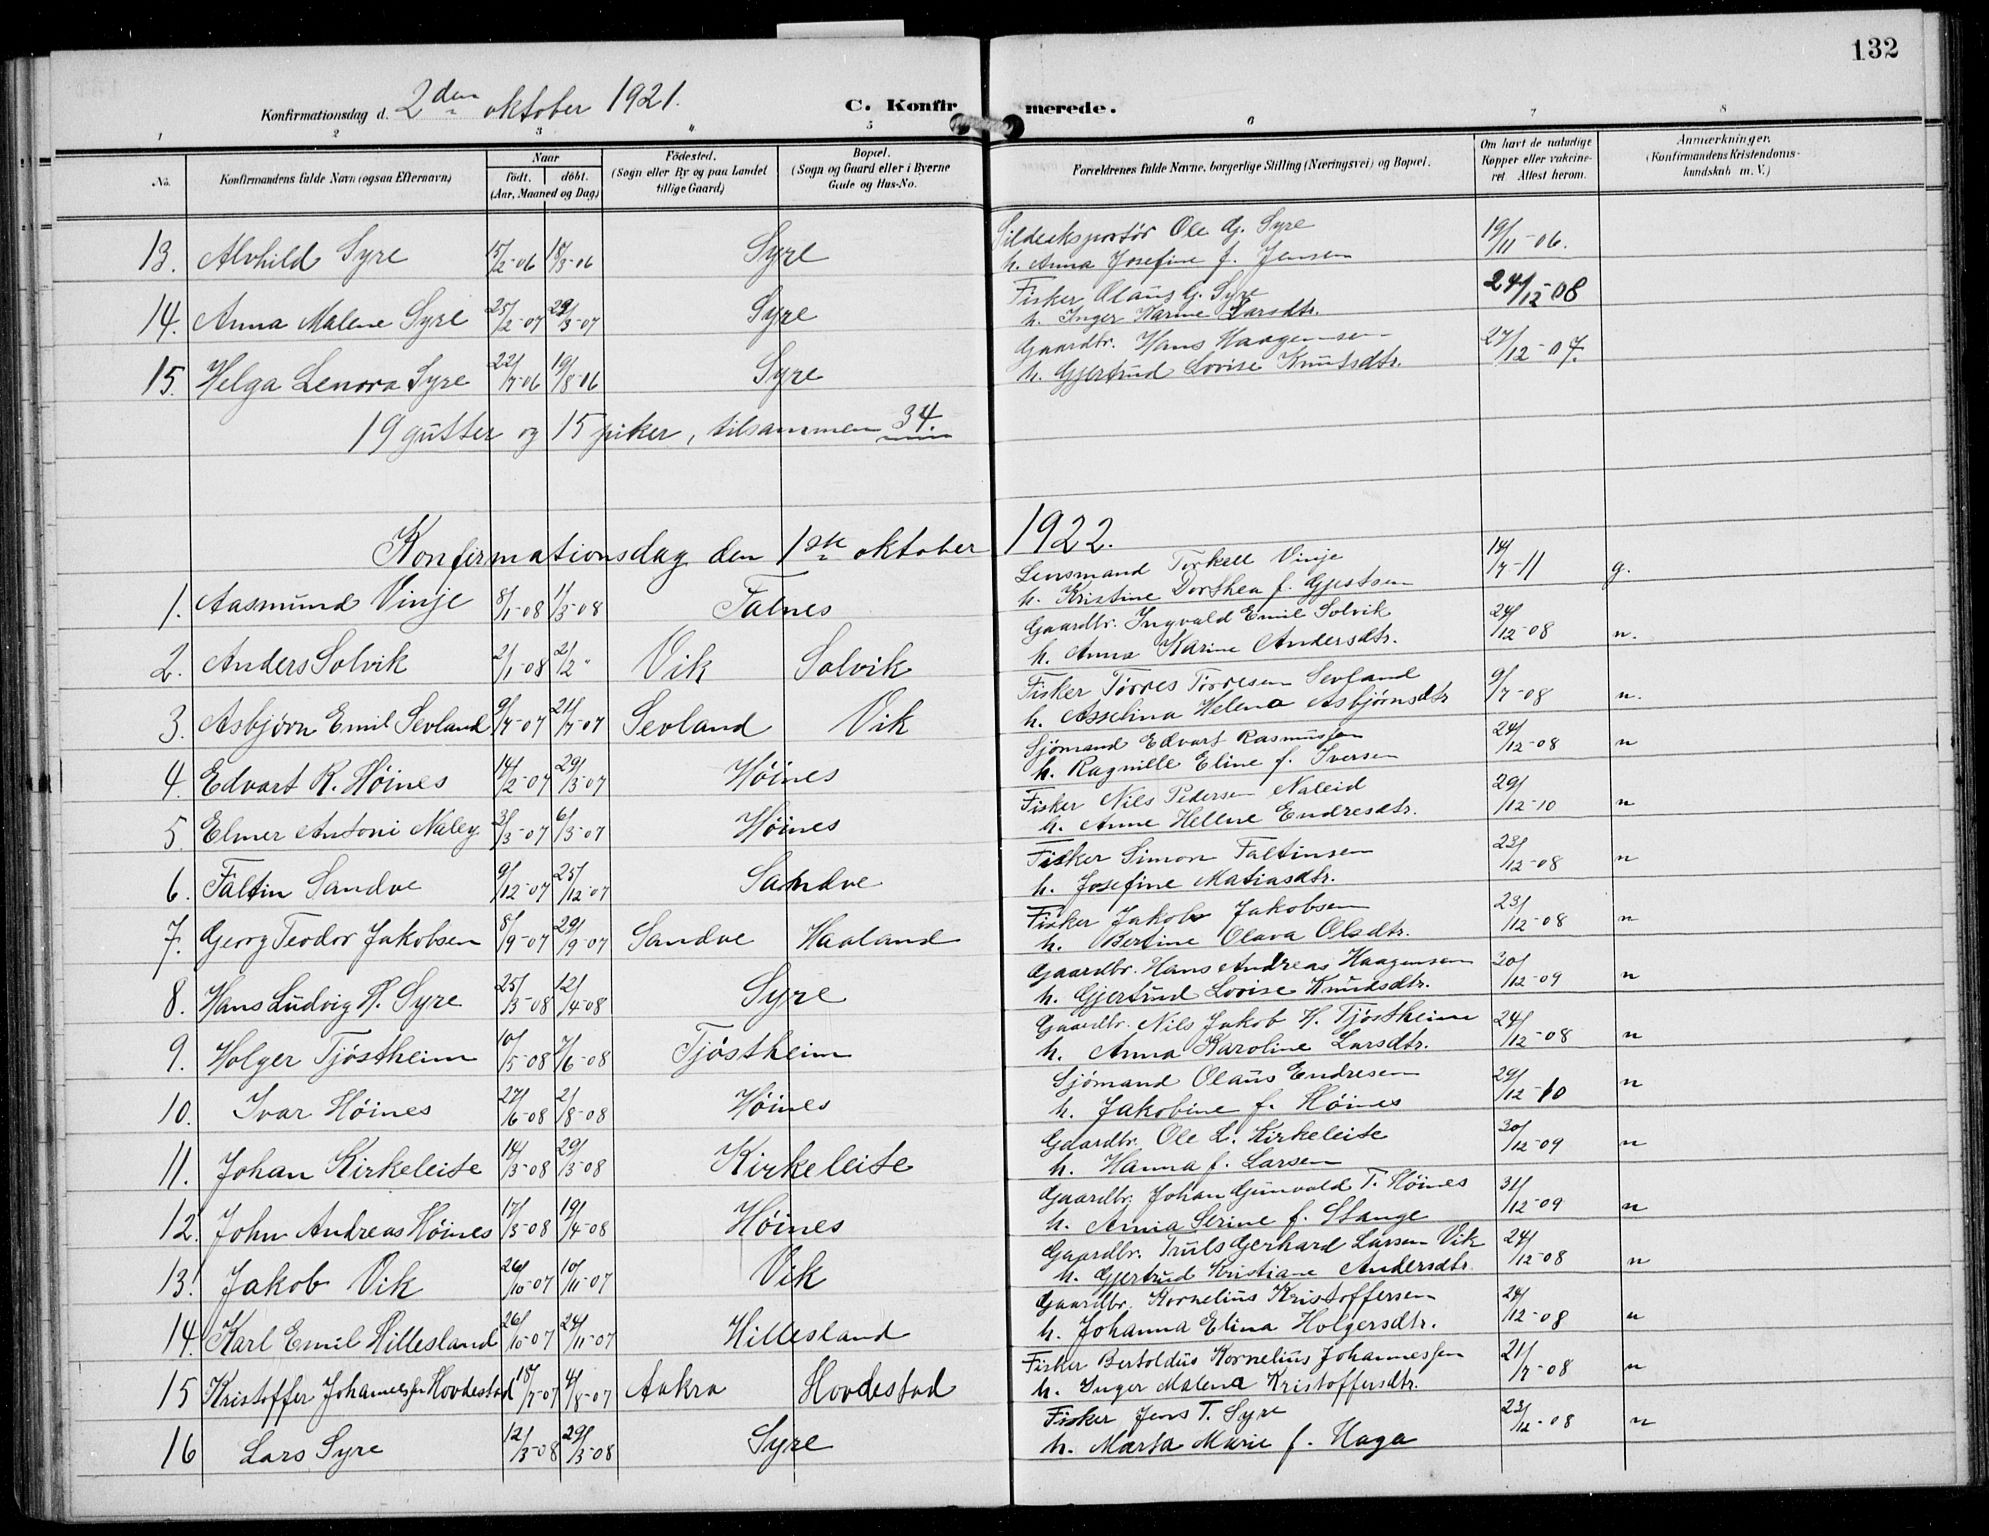 132
Konfirmationsdag d. 2den oktober 1921. C. Konfirmerede.
1 2 3 4 5 6 7 8
No. Konfirmandens fulde Navn (ogsaa Efternavn) Naar født. døbt. (Aar, Maaned og Dag) Fødested. (Sogn eller By og paa Landet tillige Gaard) Bopæl. (Sogn og Gaard eller i Byerne Gade og Hus-No. Forældrenes fulde Navne, borgerlige Stilling (Næringsvei) og Bopæl. Om havt de naturlige Kopper eller vaccineret. Attest herom. Anmærkninger. (Konfirmandens Kristendomskundskab m. V.)
13. Alvhild Syre 15/2-06 18/3-06 Syre Sildeeksportør Ole G. Syre 19/11-06.
h. Anna Josefine f. Jensen
14. Anna Malene Syre 25/2-07 29/3-07 Syre Fisker Olaus G. Syre 24/12-08
h. Inger Karine Larsdtr.
15. Helga Lenora Syre 22/7-06 19/8-06 Syre Gaardbr. Hans Haagensen 27/12-07.
h. Gjertrud Lovise Knutsdtr.
19 gutter og 15 piker, tilsammen 34.
Konfirmationsdag den 1ste oktober 1922.
1. Aasmund Vinje 8/1-08 1/3-08 Falnes Lensmand Torkell Vinje 14/7-11 g.
h. Kristine Dorthea f. Gjestsen
2. Anders Solvik 2/1-08 2/2 " Vik Solvik Gaardbr. Ingvald Emil Solvik 24/12-08 n.
h. Anna Karine Andersdtr.
3. Asbjørn Emil Sevland 9/7-07 21/7-07 Sevland Vik Fisker Tørres Torresen Sevland 9/7-08 n.
h. Asselina Helena Asbjørnsdtr
4. Edvart R. Høines 14/2-07 29/3-07 Høines Sjømand Edvart Rasmussen 24/12-08 n
h. Ragnille Eline f. Iversen
5. Elmer Antoni Naley 3/3-07 6/3-07 Høines Fisker Nils Pedersen Naleid 29/12-10 n
h. Anne Hellene Endresdtr.
6. Faltin Sandve 9/12-07 25/12-07 Sandve Fisker Simon Faltinsen 23/12-08 n
h. Josefine Matiasdtr.
7. Georg Teodor Jakobsen 8/9-07 29/9-07 Sandve Haaland Fisker Jakob Jakobsen 23/12-08 n
h. Bertine Olava Olsdtr.
8. Hans Ludvig H. Syre 25/3-08 12/4-08 Syre Gaardbr. Hans Andreas Haagensen 30/12-09 n
h. Gjertrud Lovise Knudsdtr.
9. Holger Tjøstheim 10/5-08 7/6-08 Tjøstheim Gaardbr. Nils Jakob H. Tjøstheim 24/12-08 n
h. Anna Karoline Larsdtr.
10. Ivar Høines 27/6-08 2/8-08 Høines Sjømand Olaus Endresen 29/12-10 n
h. Jakobine f. Høines
11. Johan Kirkeleite 14/3-08 29/3-08 Kirkeleite Gaardbr. Ole L. Kirkeleite 30/12-09 n
h. Hanna f. Larsen
12. John Andreas Høines 17/3-08 19/4-08 Høines Gaardbr. Johan Gunvald T. Høines 31/12-09 n
h. Anna Serine f. Stange
13. Jakob Vik 26/10-07 10/11-07 Vik Gaardbr. Truls Gerhard Larsen Vik 24/12-08 n
h. Gjertrud Kristiane Andersdtr.
14. Karl Emil Hillesland 26/10-07 24/11-07 Hillesland Gaardbr. Kornelius Kristoffersen 24/12-08 n
h. Johanna Elina Holgersdtr.
15 Kristoffer Johannessen Hovdestad 18/7-07 4/8-07 Aakra Hovdestad Fisker Bertoldus Kornelius Johannessen 21/7-08 n
h. Inger Malena Kristoffersdtr.
16 Lars Syre 12/3-08 29/3-08 Syre Fisker Jens T. Syre 23/12-08 n
h. Marta Marie f. Haga